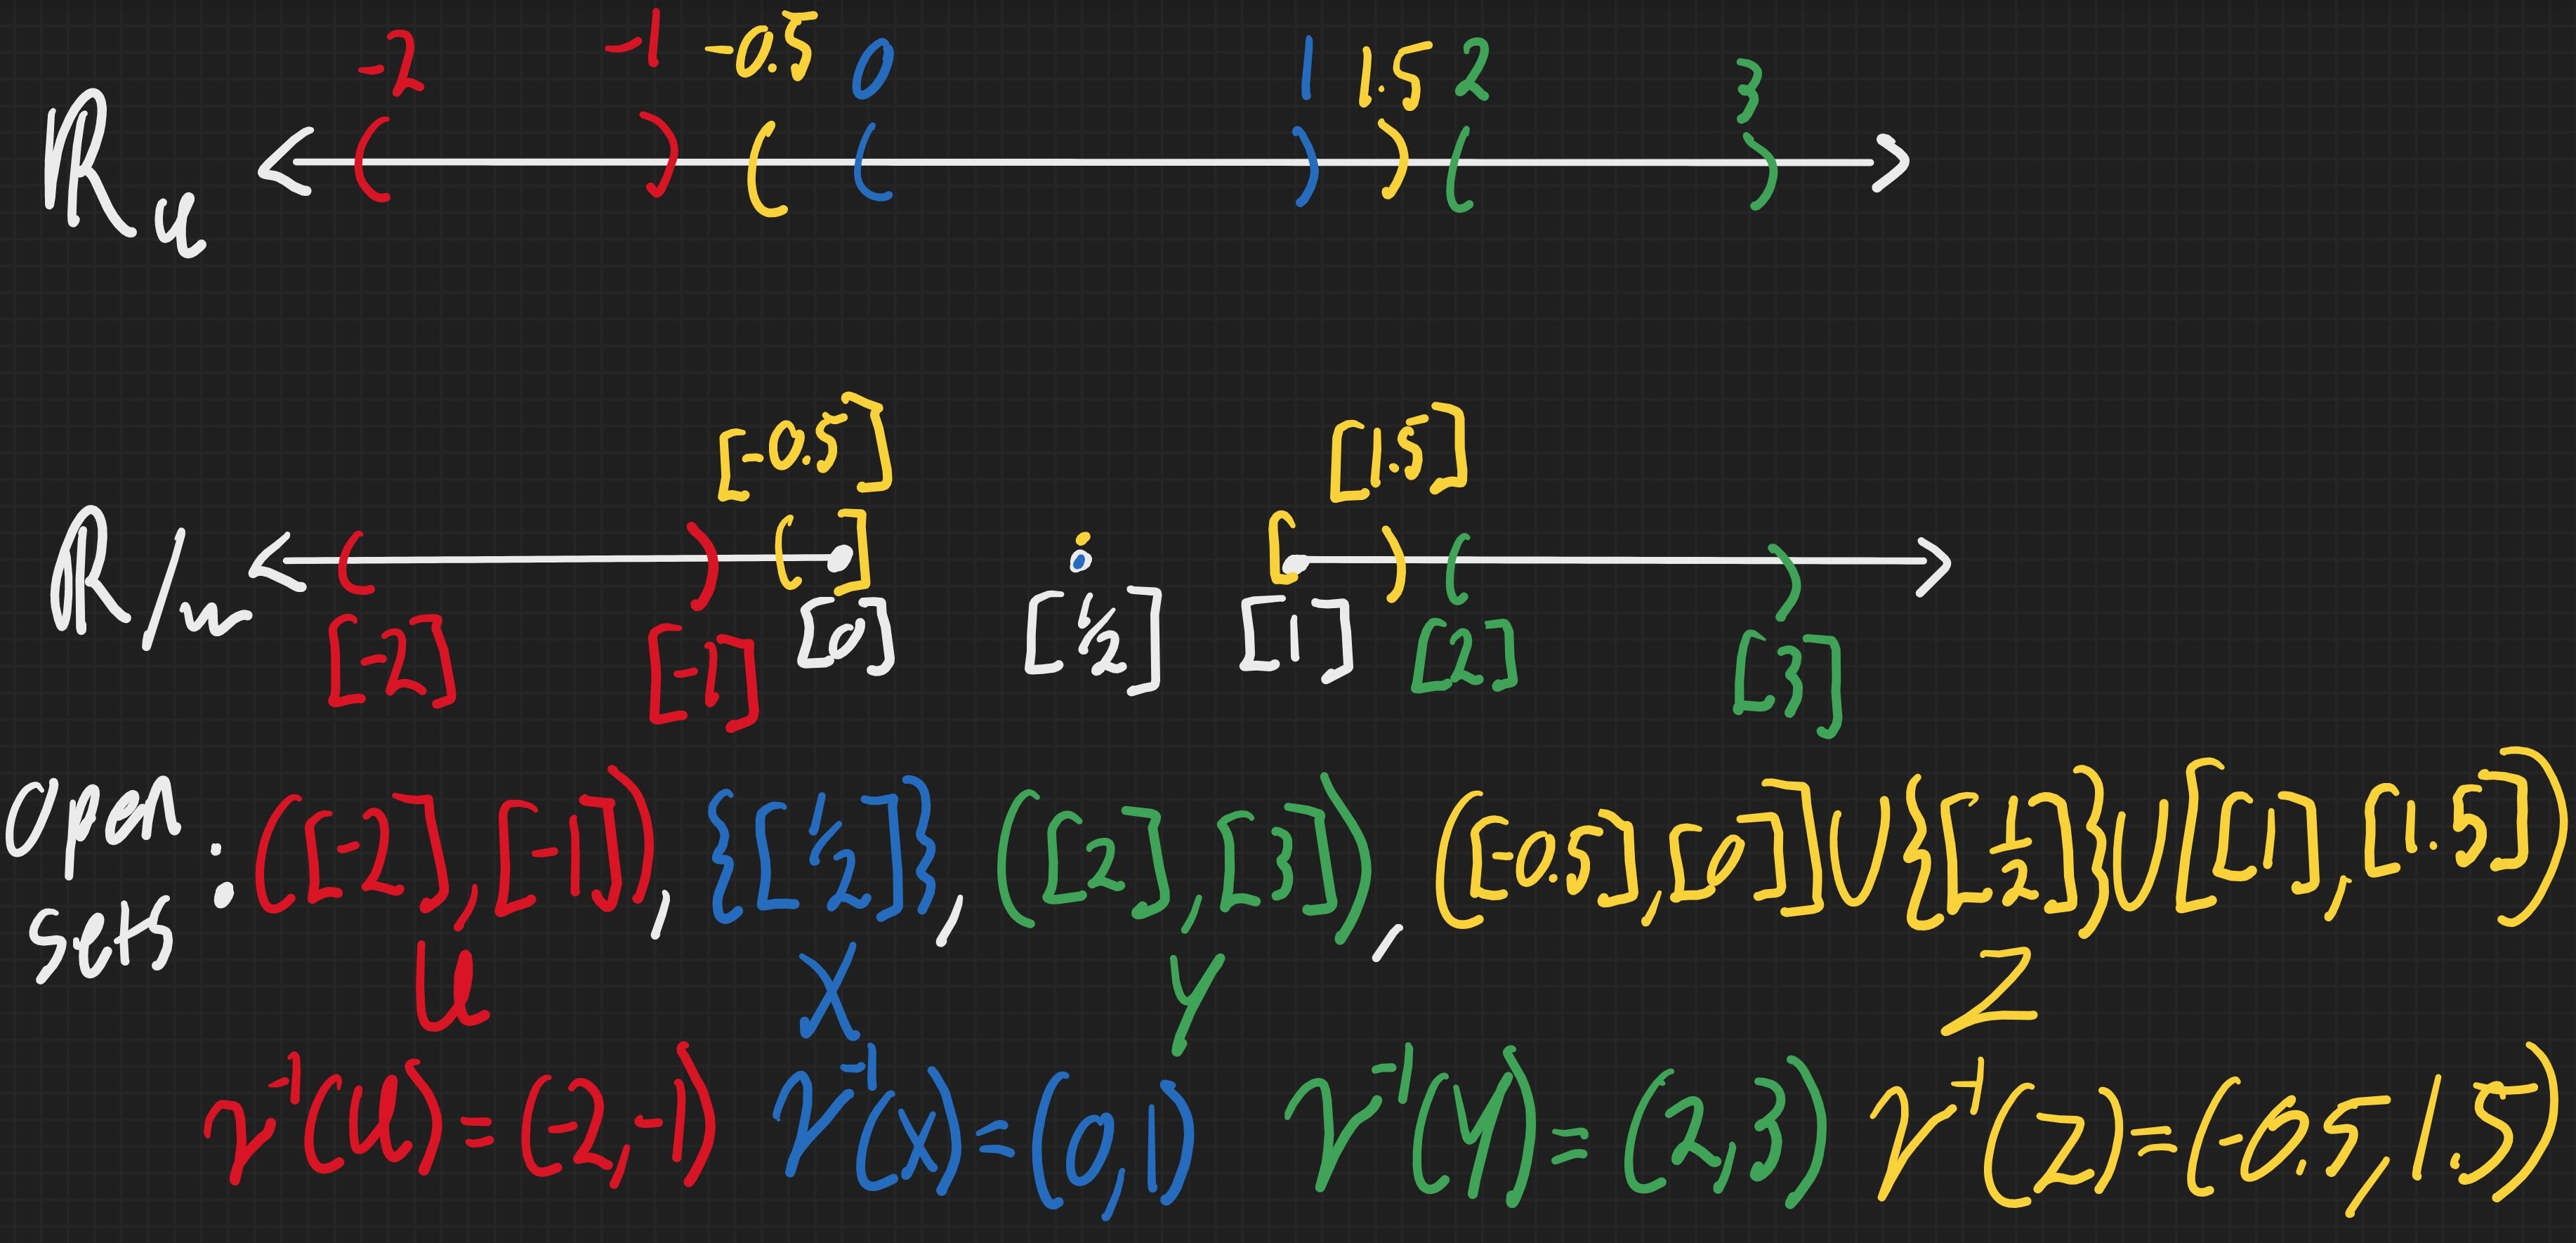 -2 -1 -0.5 0 1 1.5 2 3
ℝ_u
[-0.5] [1.5]
ℝ/~
[-2] [-1] [0] [½] [1] [2] [3]
Open sets: ([-2],[-1]), {[½]}, ([2],[3]), ([-0.5],[0]]∪{[½]}∪[[1],[1.5])
U X Y Z
γ⁻¹(U)=(-2,-1) γ⁻¹(X)=(0,1) γ⁻¹(Y)=(2,3) γ⁻¹(Z)=(-0.5,1.5)